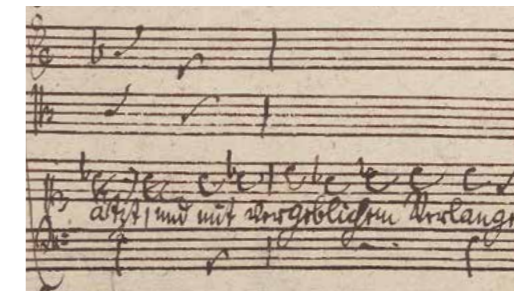 und mit vergeblichem Verlange